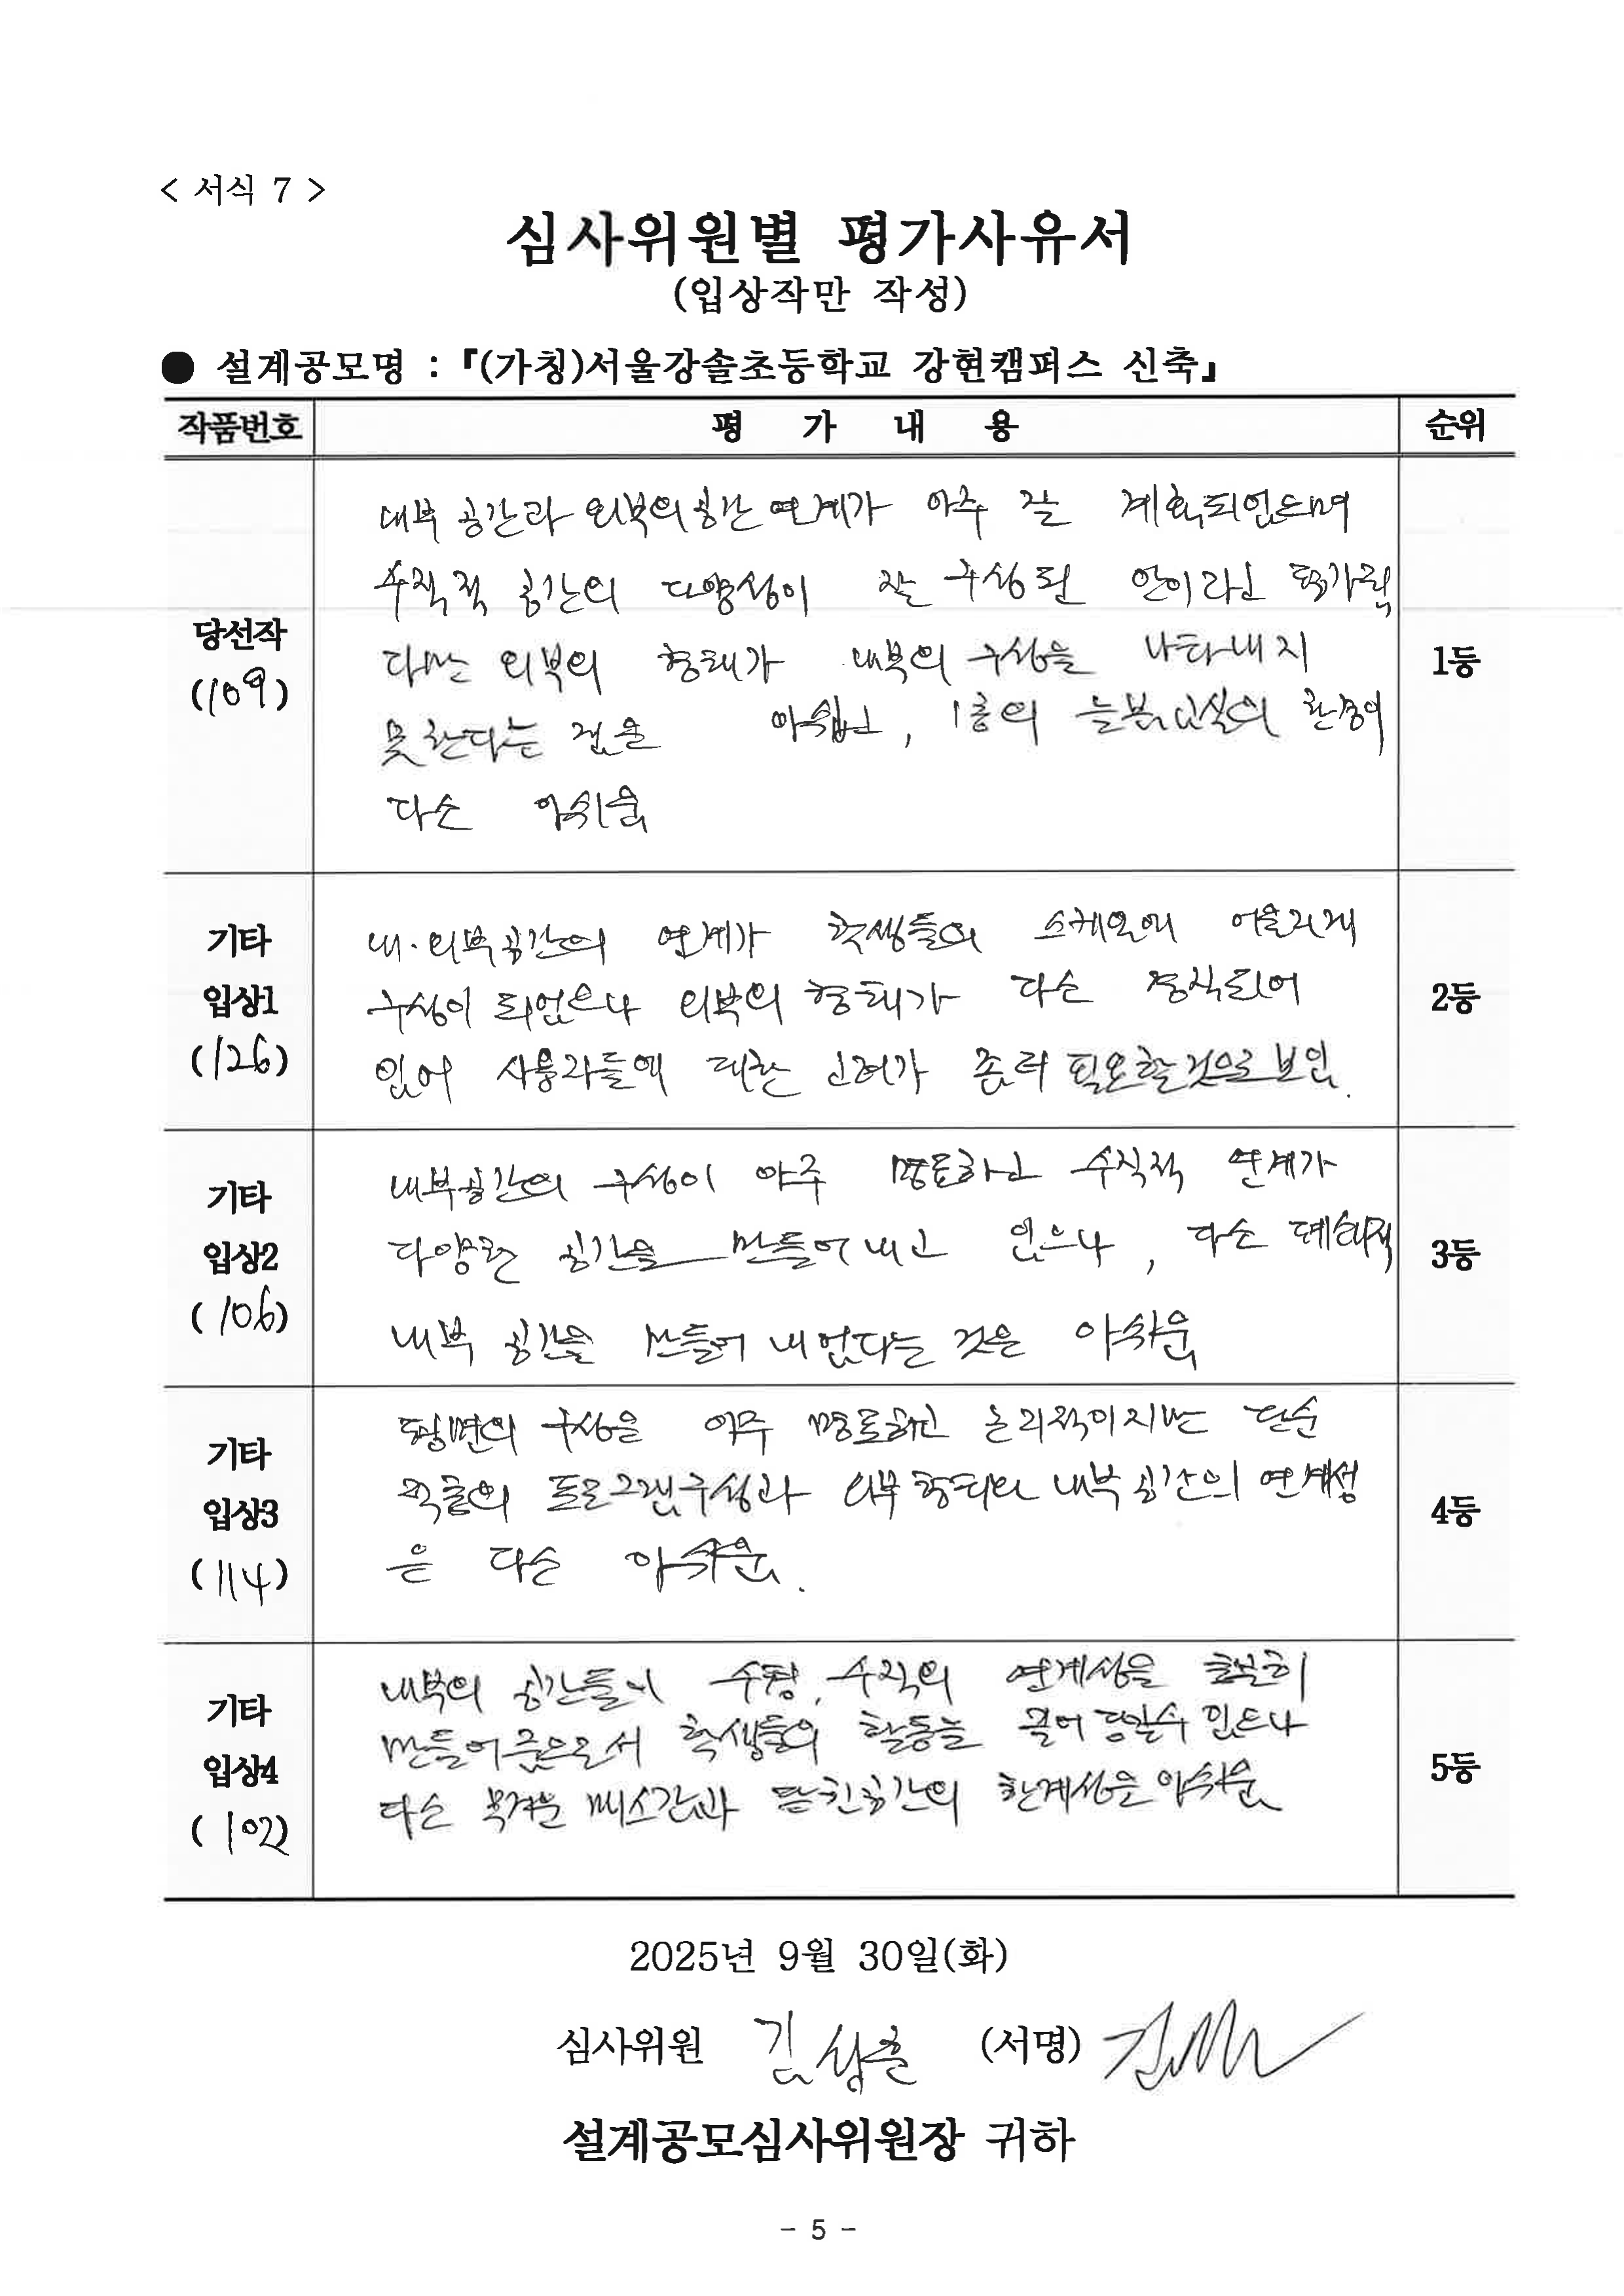 < 서식 7 >
심사위원별 평가사유서
(입상작만 작성)
● 설계공모명 : 『(가칭)서울강솔초등학교 강현캠퍼스 신축』
작품번호 평 가 내 용 순위
당선작
(109)
내부 공간과 외부의 공간 연계가 아주 잘 계획되었으며
수직적 공간의 다양성이 잘 구성된 안이라고 평가됨
다만 외부의 형태가 내부의 구성을 나타내지
못한다는 점은 아쉽고, 1층의 늘봄교실의 환경이
다소 아쉬움
1등
기타
입상1
(126)
내·외부공간의 연계가 학생들의 스케일에 어울리게
구성이 되었으나 외부의 형태가 다소 경직되어
있어 사용자들에 대한 고려가 좀더 필요할것으로 보임.
2등
기타
입상2
(106)
내부공간의 구성이 아주 명료하고 수직적 연계가
다양한 공간을 만들어내고 있으나, 다소 폐쇄적
내부 공간을 만들어 내었다는 것은 아쉬움
3등
기타
입상3
(114)
평면의 구성은 아주 명료하고 논리적이지만 단순
프로그램구성과 외부형태와 내부공간의 연계성
은 다소 아쉬움.
4등
기타
입상4
(102)
내부의 공간들이 수평, 수직의 연계성을 충분히
만들어줌으로서 학생들의 활동을 끌어 당길수 있으나
다소 무거운 매스감과 닫힌공간의 한계성은 아쉬움
5등
2025년 9월 30일(화)
심사위원 김 (서명)
설계공모심사위원장 귀하
- 5 -